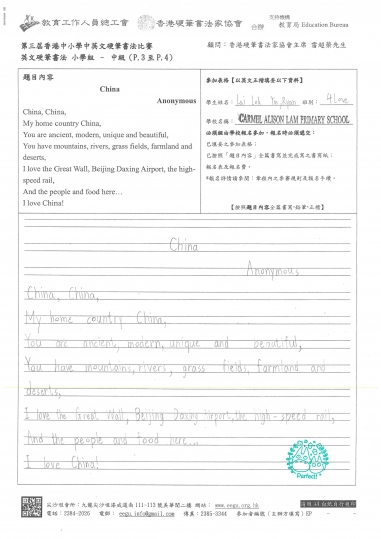 教育工作人員總工會
香港硬筆書法家協會
合辦
支持機構
教育局 Education Bureau
第三屆香港中小學中英文硬筆書法比賽
顧問：香港硬筆書法家協會主席 雷超榮先生
英文硬筆書法 小學組 － 中級 (P.3 至 P.4)
題目內容
China
Anonymous
China, China,
My home country China,
You are ancient, modern, unique and beautiful,
You have mountains, rivers, grass fields, farmland and
deserts,
I love the Great Wall, Beijing Daxing Airport, the high-
speed rail,
And the people and food here…
I love China!
參加表格【以英文正楷填妥以下資料】
學生姓名： Lai Lok 班別： 4 Love
學校名稱： CARMEL ALISON LAM PRIMARY SCHOOL
必須經由學校報名參加，報名時必須遞交：
已填妥之參加表格；
已按照「題目內容」全篇書寫並完成英之書寫紙；
報名表及報名費。
【按照題目內容全篇書寫-鉛筆-正楷】
China
Anonymous
China, China,
My home country China,
You are ancient, modern, unique and beautiful,
You have mountains, rivers, grass fields, farmland and
deserts,
I love the Great Wall, Beijing Daxing Airport, the high-speed rail,
And the people and food here...
I love China!
Perfect!
尖沙咀會所：九龍尖沙咀漆咸道南 111-113 號 網站： www.eogu.org.hk
電話：2384-2026 電郵： eogu.info@gmail.com 傳真：2385-3344 參加會編號 (主辦方填寫) EP - -